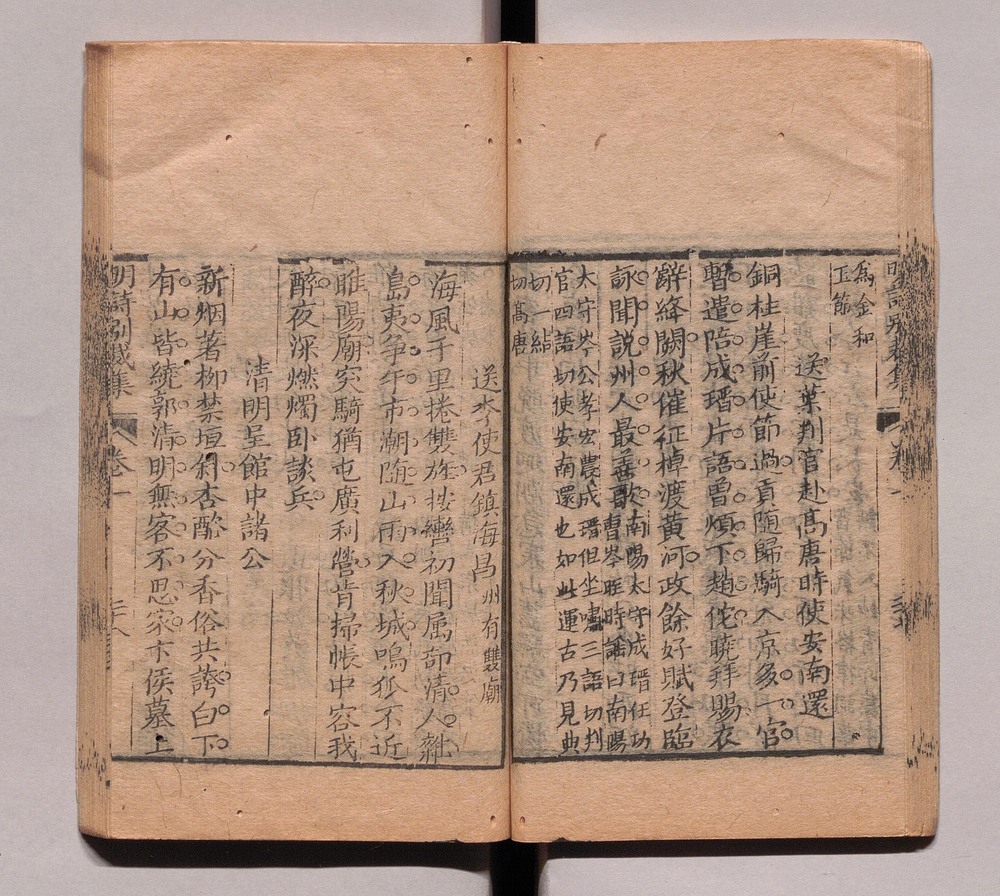 為金和
玉節
送葉判官赴高唐時使安南還
銅柱崖前使節過貢隨歸騎入京多一官
暫遣陪成瑨片語曽煩下趙佗曉拜賜衣
辭絳闕秋催征棹渡黃河政餘好賦登臨
詠聞説州人最善歌
南陽太守成瑨任功
曹岑晊時謠曰南陽
太守岑公孝宏農成瑨但坐嘯三語切判
官四語切使安南還也如此運古乃見典
切一結
切髙唐
送李使君鎮海昌州有雙廟
海風千里捲雙旌按轡初聞属部清人雜
島夷争午市潮随山雨入秋城鳴狐不近
睢陽廟突騎猶屯廣利營肯掃帳中容我
醉夜深燃燭卧談兵
清明呈館中諸公
新烟著柳禁垣斜杏酪分香俗共誇白下
有山皆繞郭清明無客不思家卞侯墓上
明詩别裁集
卷一